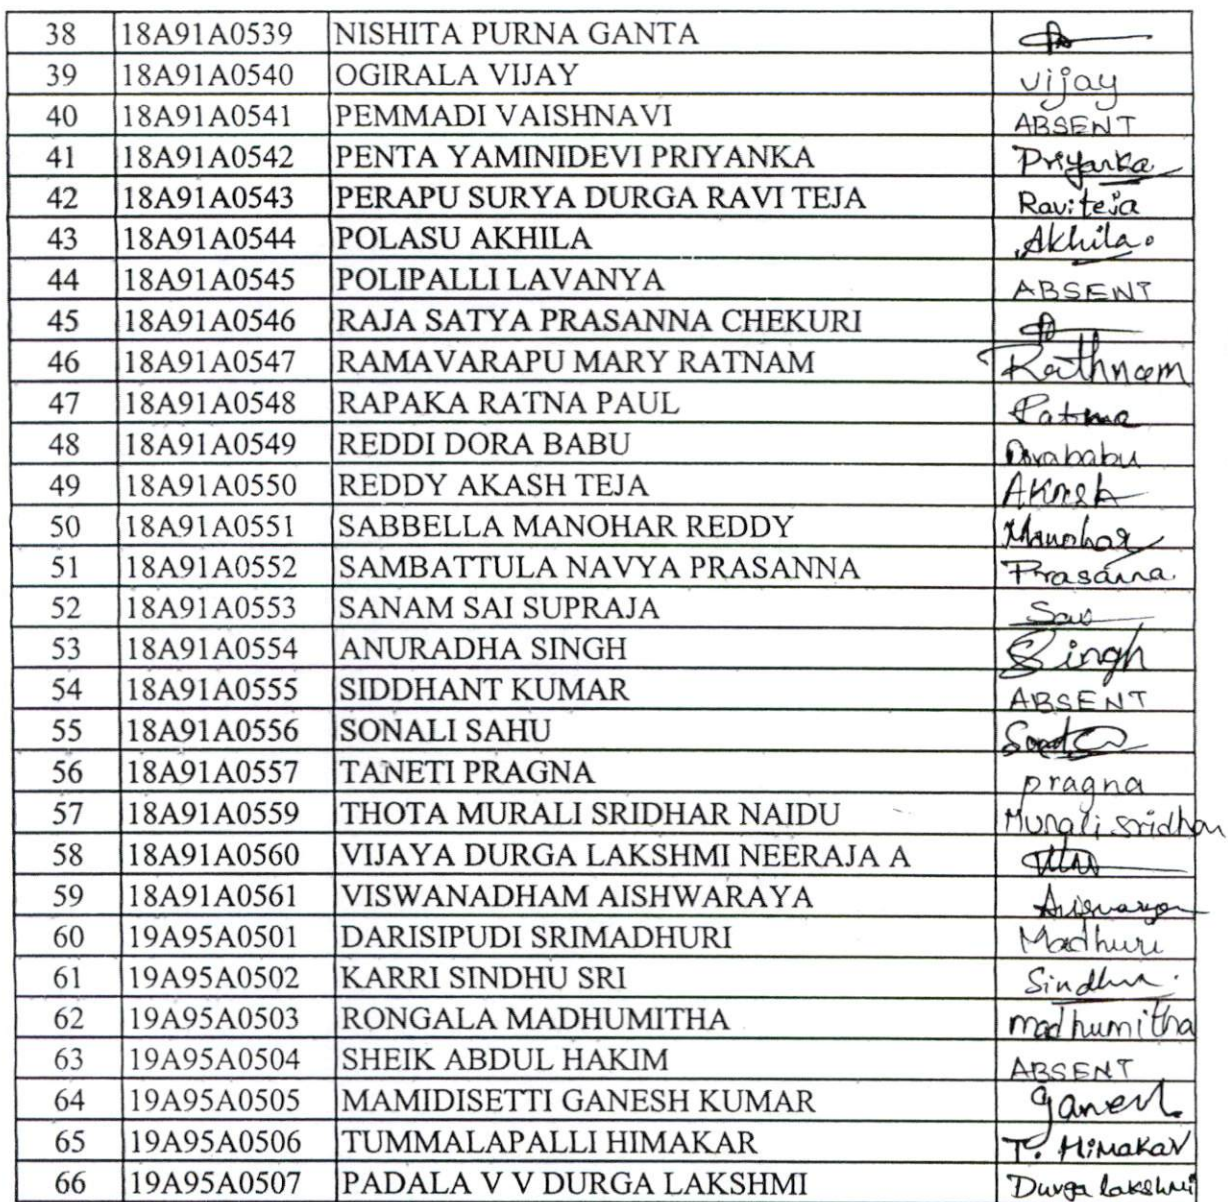 38 18A91A0539 NISHITA PURNA GANTA
39 18A91A0540 OGIRALA VIJAY vijay
40 18A91A0541 PEMMADI VAISHNAVI ABSENT
41 18A91A0542 PENTA YAMINIDEVI PRIYANKA Priyanka
42 18A91A0543 PERAPU SURYA DURGA RAVI TEJA Raviteja
43 18A91A0544 POLASU AKHILA Akhila.
44 18A91A0545 POLIPALLI LAVANYA ABSENT
45 18A91A0546 RAJA SATYA PRASANNA CHEKURI
46 18A91A0547 RAMAVARAPU MARY RATNAM Rathnam
47 18A91A0548 RAPAKA RATNA PAUL Ratna
48 18A91A0549 REDDI DORA BABU Dorababu
49 18A91A0550 REDDY AKASH TEJA Akash
50 18A91A0551 SABBELLA MANOHAR REDDY Manohar
51 18A91A0552 SAMBATTULA NAVYA PRASANNA Prasanna.
52 18A91A0553 SANAM SAI SUPRAJA
53 18A91A0554 ANURADHA SINGH Singh
54 18A91A0555 SIDDHANT KUMAR ABSENT
55 18A91A0556 SONALI SAHU
56 18A91A0557 TANETI PRAGNA pragna
57 18A91A0559 THOTA MURALI SRIDHAR NAIDU Murali sridhar
58 18A91A0560 VIJAYA DURGA LAKSHMI NEERAJA A
59 18A91A0561 VISWANADHAM AISHWARAYA
60 19A95A0501 DARISIPUDI SRIMADHURI Madhuri
61 19A95A0502 KARRI SINDHU SRI Sindhu.
62 19A95A0503 RONGALA MADHUMITHA madhumitha
63 19A95A0504 SHEIK ABDUL HAKIM ABSENT
64 19A95A0505 MAMIDISETTI GANESH KUMAR Ganesh
65 19A95A0506 TUMMALAPALLI HIMAKAR T. Himakar
66 19A95A0507 PADALA V V DURGA LAKSHMI Durga lakshmi